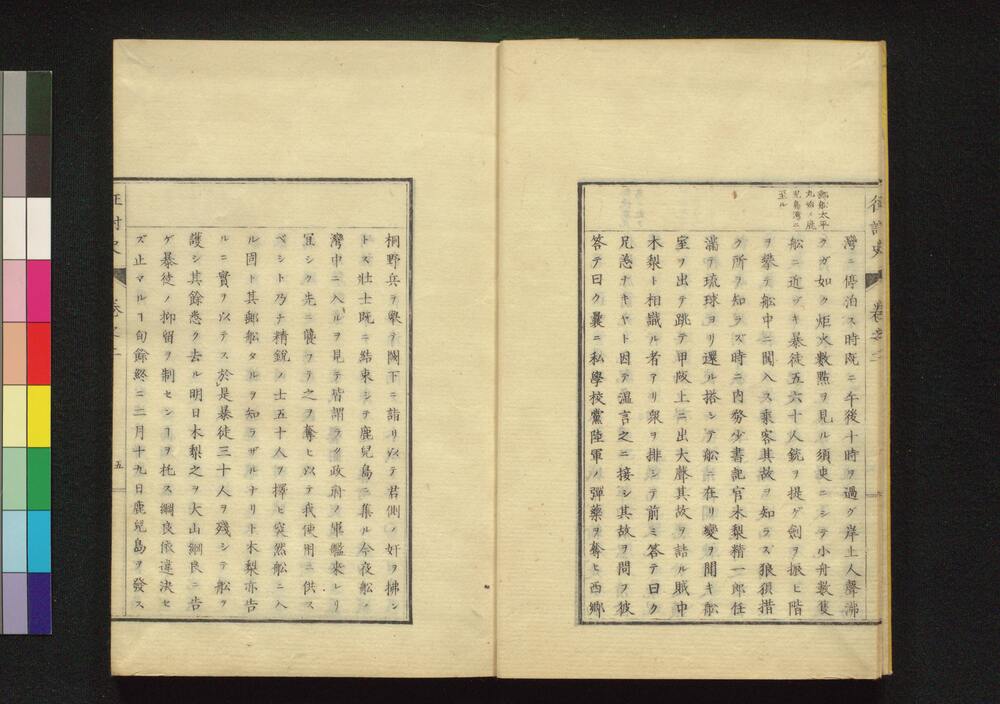 郵船太平
丸始メ鹿
児島湾ニ
至ル
灣ニ停泊ス時既ニ午後十時ヲ過グ岸上人聲沸
クガ如ク炬火數點ヲ見ル須臾ニシテ小舟數隻
舩ニ近ヅキ暴徒五六十人銃ヲ提ゲ劍ヲ振ヒ階
ヲ攀テ舩中ニ闖入ス乗客其故ヲ知ラズ狼狽措
ク所ヲ知ラズ時ニ内務少書記官木梨精一郎任
滿テ琉球ヨリ還ル搭シテ舩ニ在リ變ヲ聞キ舩
室ヲ出テ跳テ甲阪上ニ出大聲其故ヲ詰ル賊中
木梨ト相識ル者アリ衆ヲ排シテ前ミ答テ曰ク
兄恙ナキヤト因テ温言之ニ接シ其故ヲ問フ彼
答テ曰ク曩ニ私學校黨陸軍ノ彈藥ヲ奪ヒ西郷
桐野兵ヲ擧テ闕下ニ詣リ以テ君側ノ奸ヲ拂ン
トス壮士既ニ結束シテ鹿兒島ニ集ル今夜舩ノ
灣中ニ入ルヲ見テ皆謂ラク政府ノ軍艦来レリ
冝シク先ニ襲フテ之ヲ奪ヒ以テ我使用ニ供ス
ベシト乃チ精鋭ノ士五十人ヲ擇ヒ突然舩ニ入
ル固ト其郵舩タルヲ知ラザルナリト木梨亦告
ルニ實ヲ以テス於是暴徒三十人ヲ殘シテ舩ヲ
護シ其餘悉ク去ル明日木梨之ヲ大山綱良ニ告
ゲ暴徒ノ抑留ヲ制センヿヲ托ス綱良依違決セ
ズ止マルヿ旬餘終ニ二月十九日鹿兒島ヲ發ス
五